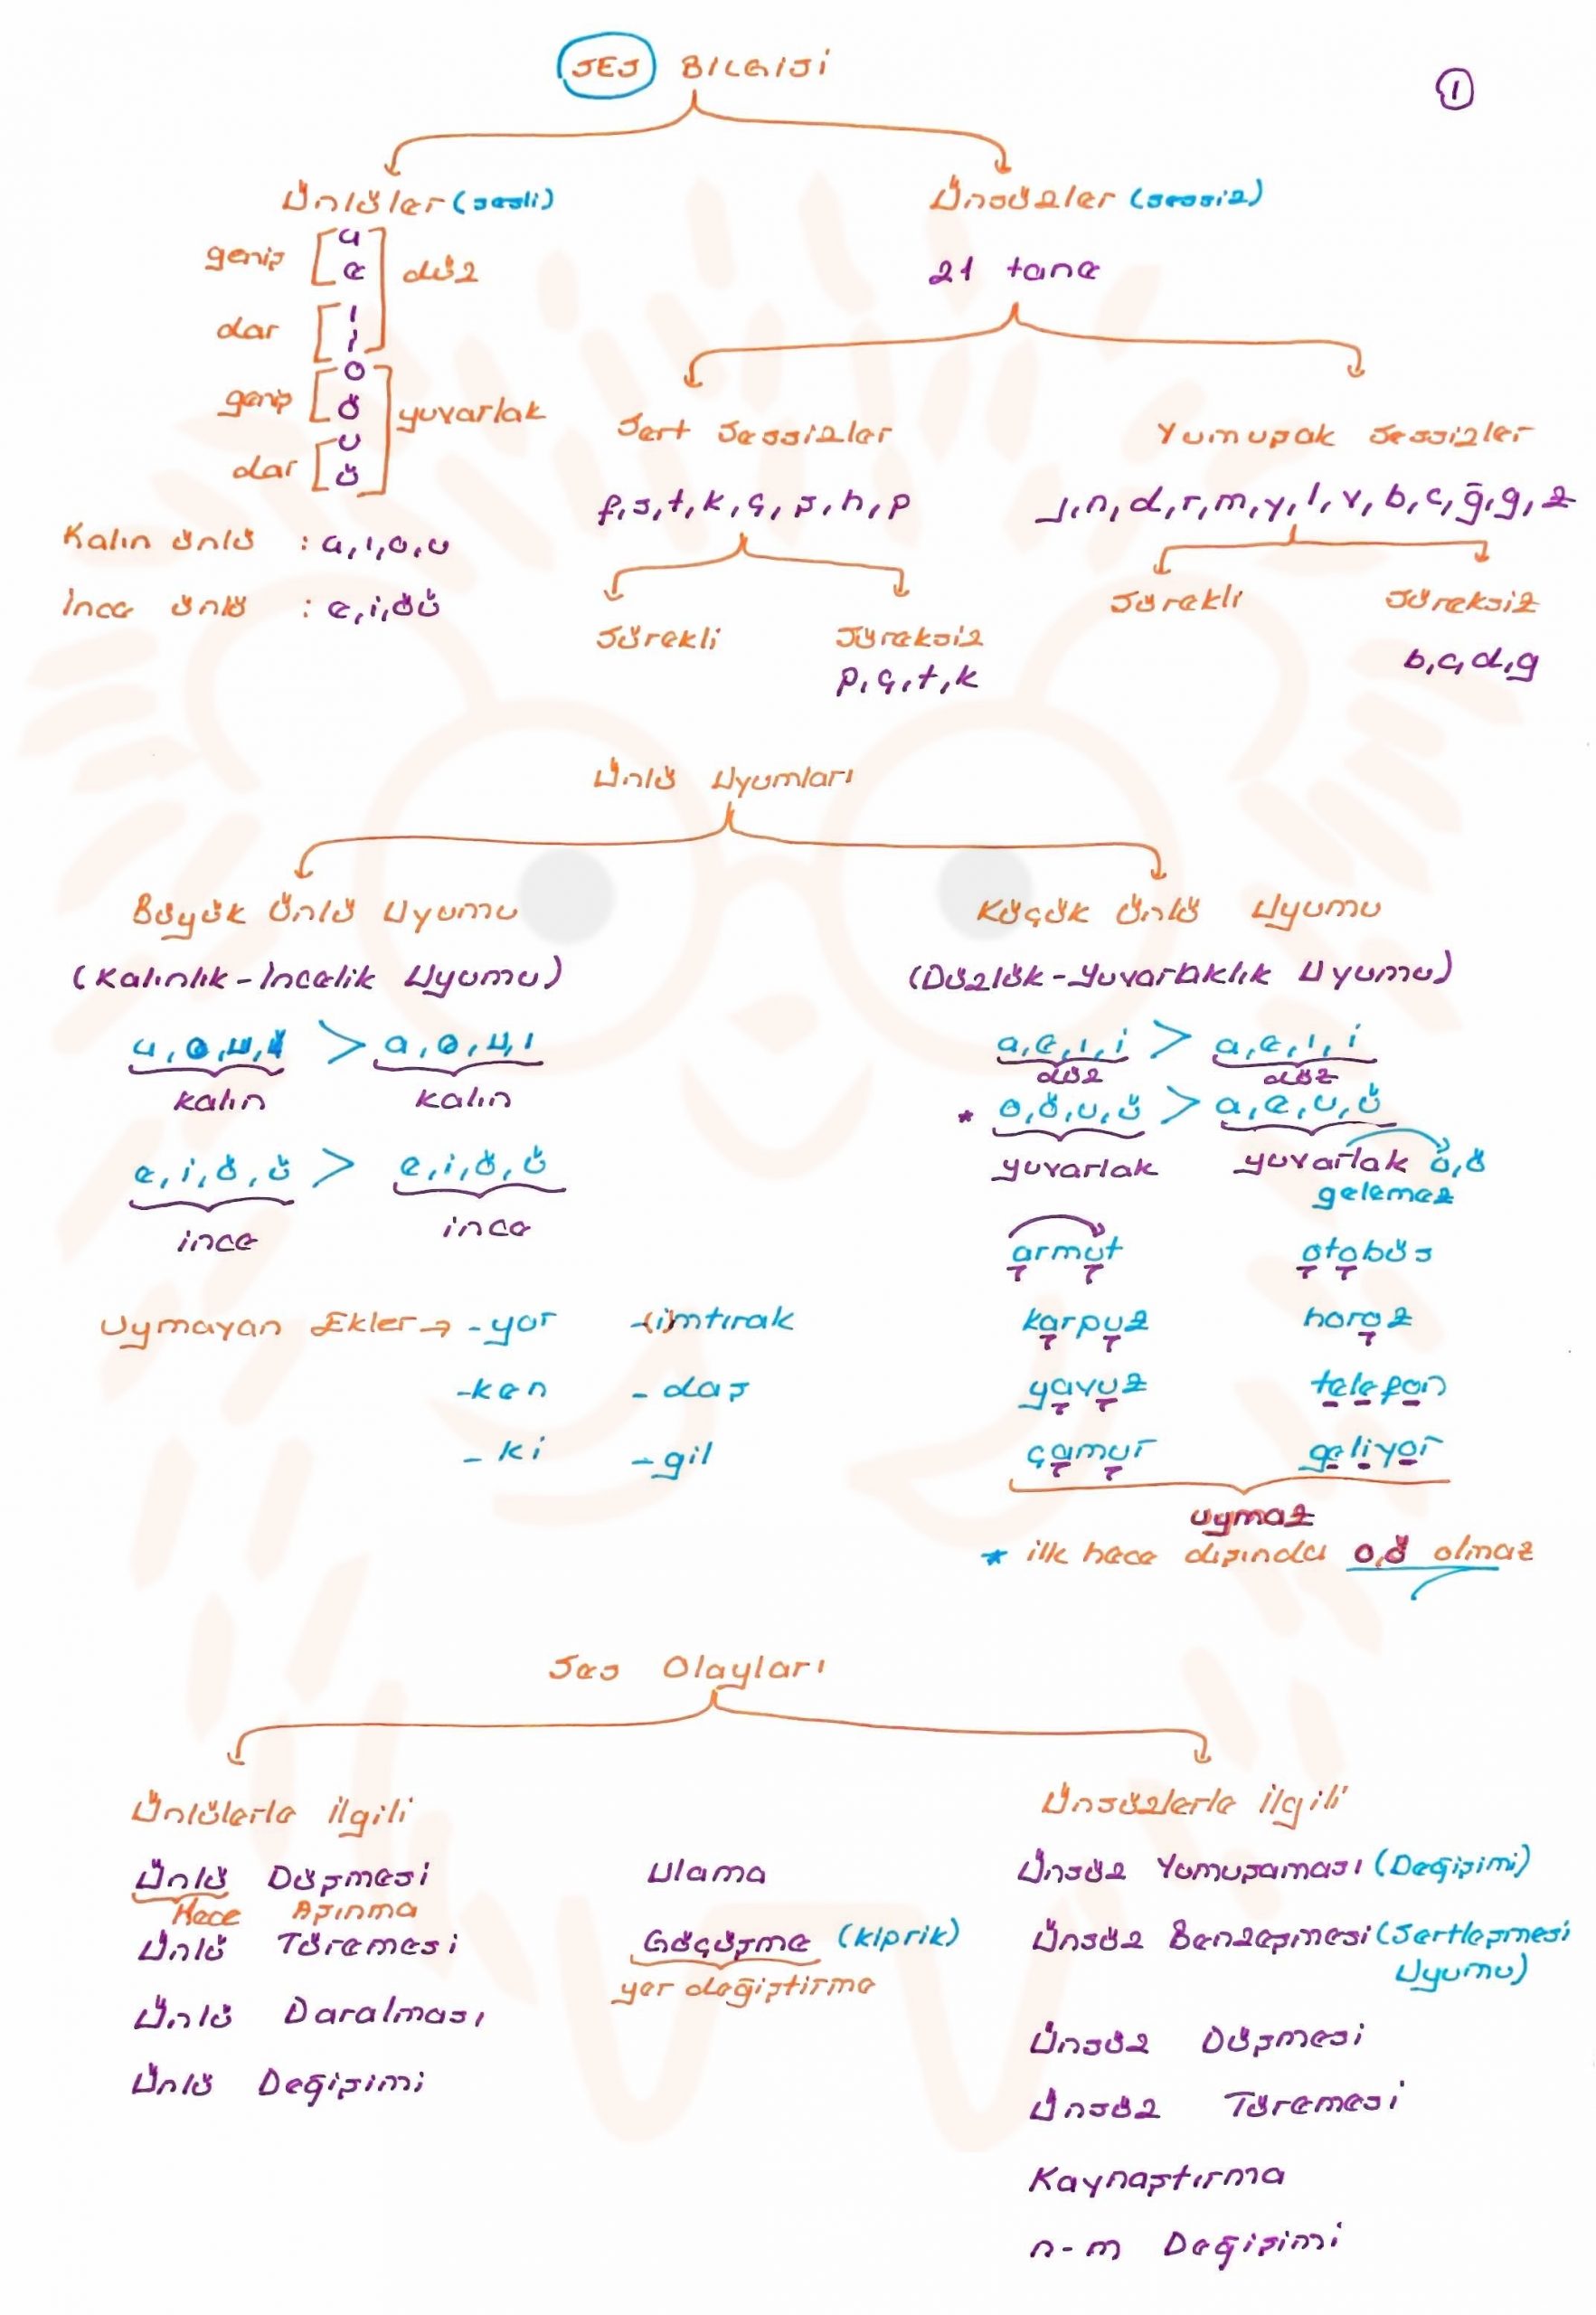 SES BİLGİSİ
1
Ünlüler (sesli)
geniş a e düz
dar ı i
geniş o ö yuvarlak
dar u ü
Kalın ünlü : a, ı, o, u
İnce ünlü : e, i, ö ü
Ünsüzler (sessiz)
21 tane
Sert Sessizler
f, s, t, k, ç, ş, h, p
Sürekli
Süreksiz
p, ç, t, k
Yumuşak Sessizler
j, n, d, r, m, y, l, v, b, c, ğ, g, z
Sürekli
Süreksiz
b, c, d, g
Ünlü Uyumları
Büyük Ünlü Uyumu
(Kalınlık-İncelik Uyumu)
a, o, u, ı > a, o, u, ı
kalın kalın
e, i, ö, ü > e, i, ö, ü
ince ince
Uymayan Ekler → -yor -(i)mtırak
-ken -daş
-ki -gil
Küçük Ünlü Uyumu
(Düzlük-Yuvarlaklık Uyumu)
a, e, ı, i > a, e, ı, i
düz düz
* o, ö, u, ü > a, e, u, ü
yuvarlak yuvarlak o, ö
gelemez
armut otobüs
karpuz horoz
yavuz telefon
çamur geliyor
uymaz
* ilk hece dışında o, ö olmaz
Ses Olayları
Ünlülerle İlgili
Ünlü Düşmesi
Hece Aşınma
Ünlü Türemesi
Ünlü Daralması
Ünlü Değişimi
Ulama
Göçüşme (kiprik)
yer değiştirme
Ünsüzlerle İlgili
Ünsüz Yumuşaması (Değişimi)
Ünsüz Benzeşmesi (Sertleşmesi
Uyumu)
Ünsüz Düşmesi
Ünsüz Türemesi
Kaynaştırma
n-m Değişimi